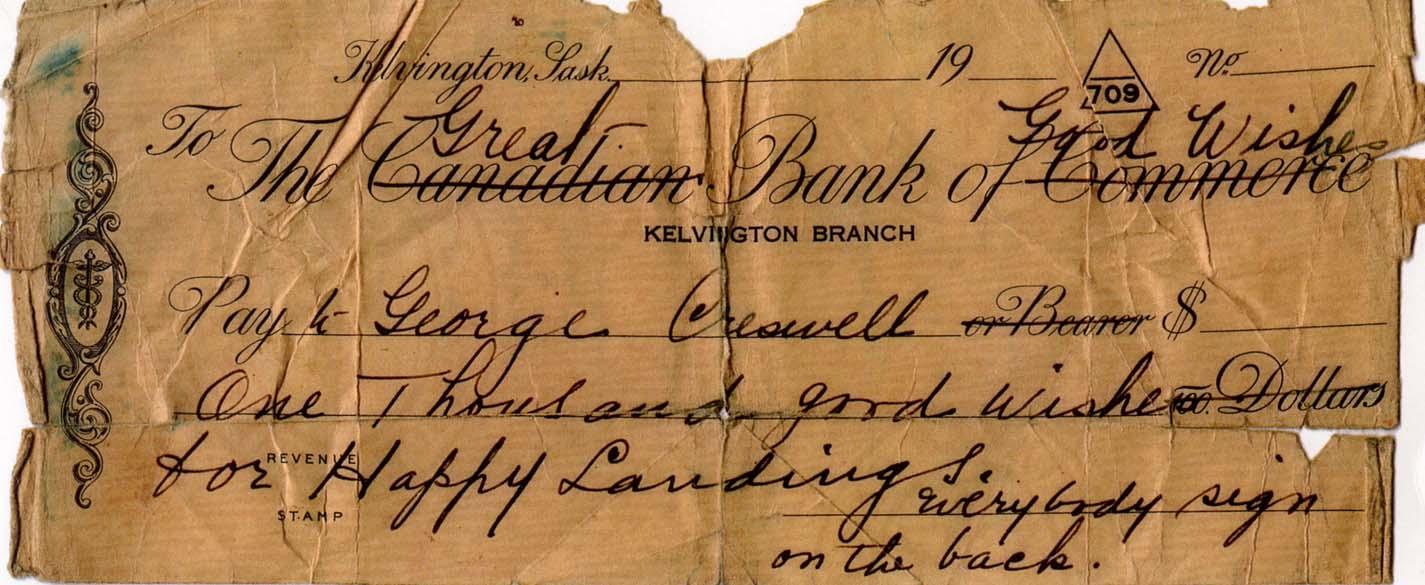 Kelvington, Sask. 19 No.
709
Great Good Wishes
To The Canadian Bank of Commerce
KELVINGTON BRANCH
Pay to George Creswell or Bearer $
One Thousand good wishes Dollars
for Happy Landings.
REVENUE
STAMP
Everybody sign
on the back.